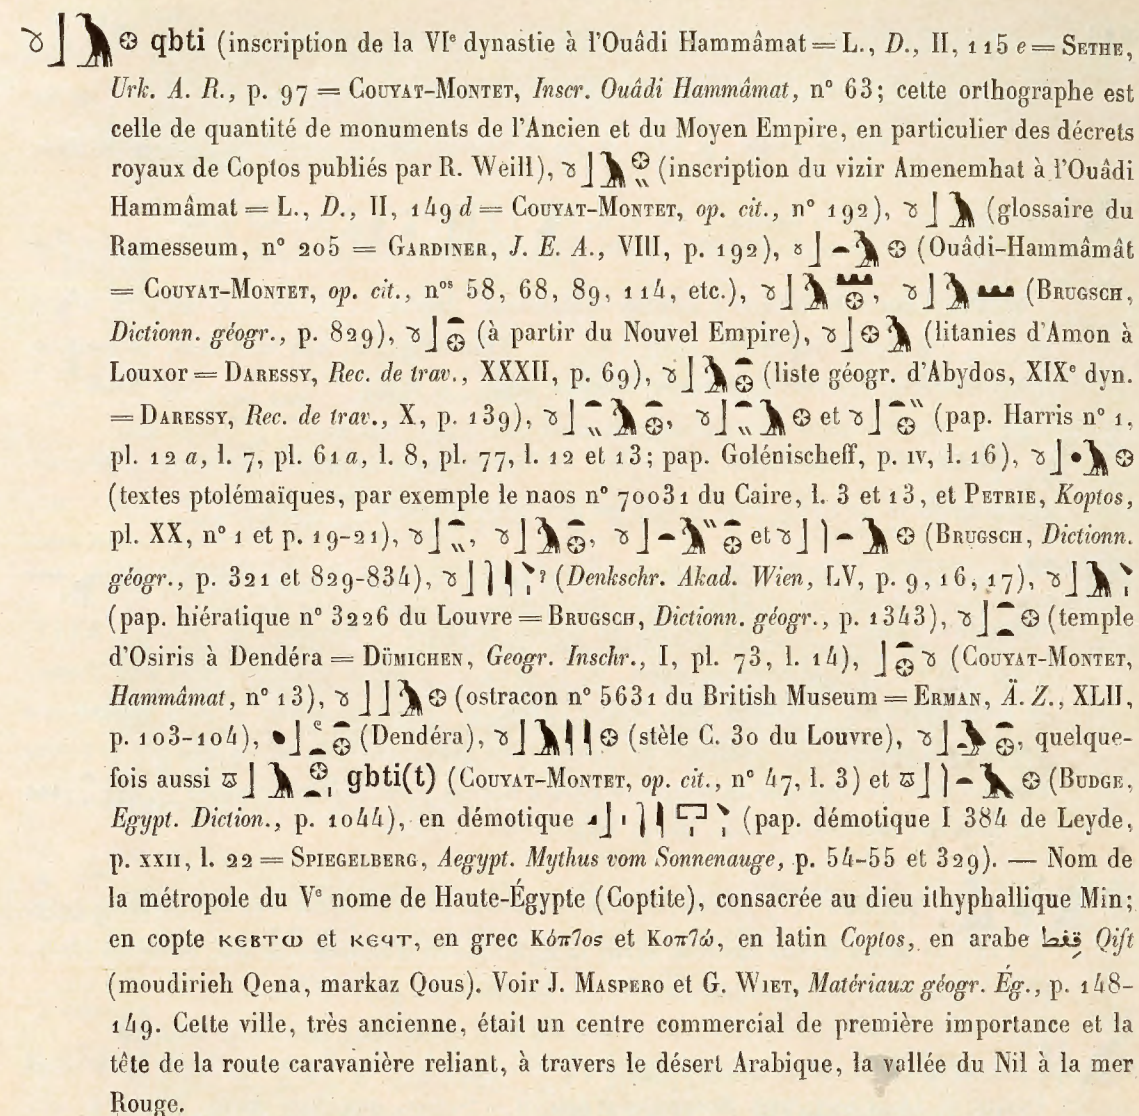 qbti (inscription de la VIᵉ dynastie à l'Ouâdi Hammâmat = L., D., II, 115 e = SETHE,
Urk. A. R., p. 97 = COUYAT-MONTET, Inscr. Ouâdi Hammâmat, n° 63; cette orthographe est
celle de quantité de monuments de l'Ancien et du Moyen Empire, en particulier des décrets
royaux de Coptos publiés par R. Weill), (inscription du vizir Amenemhat à l'Ouâdi
Hammâmat = L., D., II, 149 d = COUYAT-MONTET, op. cit., n° 192), (glossaire du
Ramesseum, n° 205 = GARDINER, J. E. A., VIII, p. 192), (Ouâdi-Hammâmât
= COUYAT-MONTET, op. cit., nᵒˢ 58, 68, 89, 114, etc.), , (BRUGSCH,
Dictionn. géogr., p. 829), (à partir du Nouvel Empire), (litanies d'Amon à
Louxor = DARESSY, Rec. de trav., XXXII, p. 69), (liste géogr. d'Abydos, XIXᵉ dyn.
= DARESSY, Rec. de trav., X, p. 139), , et (pap. Harris n° 1,
pl. 12 a, l. 7, pl. 61 a, l. 8, pl. 77, l. 12 et 13; pap. Golénischeff, p. IV, l. 16),
(textes ptolémaïques, par exemple le naos n° 70031 du Caire, l. 3 et 13, et PETRIE, Koptos,
pl. XX, n° 1 et p. 19-21), , , et (BRUGSCH, Dictionn.
géogr., p. 321 et 829-834), ? (Denkschr. Akad. Wien, LV, p. 9, 16, 17),
(pap. hiératique n° 3226 du Louvre = BRUGSCH, Dictionn. géogr., p. 1343), (temple
d'Osiris à Dendéra = DÜMICHEN, Geogr. Inschr., I, pl. 73, l. 14), (COUYAT-MONTET,
Hammâmat, n° 13), (ostracon n° 5631 du British Museum = ERMAN, Ä. Z., XLII,
p. 103-104), (Dendéra), (stèle C. 30 du Louvre), , quelque-
fois aussi gbti(t) (COUYAT-MONTET, op. cit., n° 47, l. 3) et (BUDGE,
Egypt. Diction., p. 1044), en démotique (pap. démotique I 384 de Leyde,
p. XXII, l. 22 = SPIEGELBERG, Aegypt. Mythus vom Sonnenauge, p. 54-55 et 329). — Nom de
la métropole du Vᵉ nome de Haute-Égypte (Coptite), consacrée au dieu ithyphallique Min;
en copte ⲕⲉⲃⲧⲱ et ⲕⲉϥⲧ, en grec Κόπτος et Κοπτώ, en latin Coptos, en arabe قفط Qift
(moudirieh Qena, markaz Qous). Voir J. MASPERO et G. WIET, Matériaux géogr. Ég., p. 148-
149. Cette ville, très ancienne, était un centre commercial de première importance et la
tête de la route caravanière reliant, à travers le désert Arabique, la vallée du Nil à la mer
Rouge.